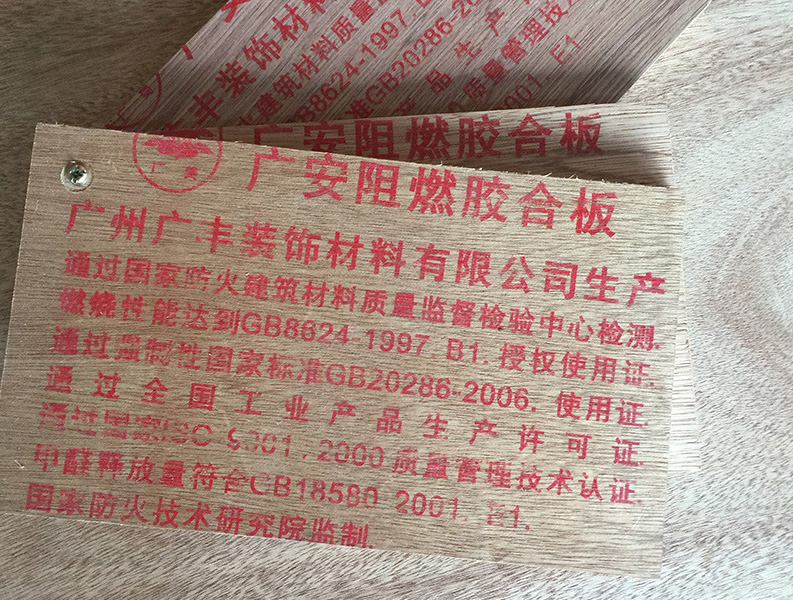 装饰材料
建筑材料质量
GB8624-1997.
GB20286-20
产品生产
质量管理技术
2001. E1
广安阻燃胶合板
广安
广安阻燃胶合板
广州广丰装饰材料有限公司生产
通过国家防火建筑材料质量监督检验中心检测.
燃烧性能达到GB8624-1997. B1. 授权使用证.
通过强制性国家标准GB20286-2006. 使用证.
通过全国工业产品生产许可证.
通过国家ISO 9001.2000质量管理技术认证.
甲醛释放量符合GB18580 2001. E1.
国家防火技术研究院监制.